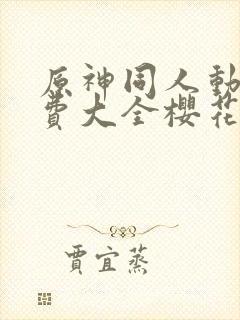 原神同人動
費大全櫻花
賈宜蒸